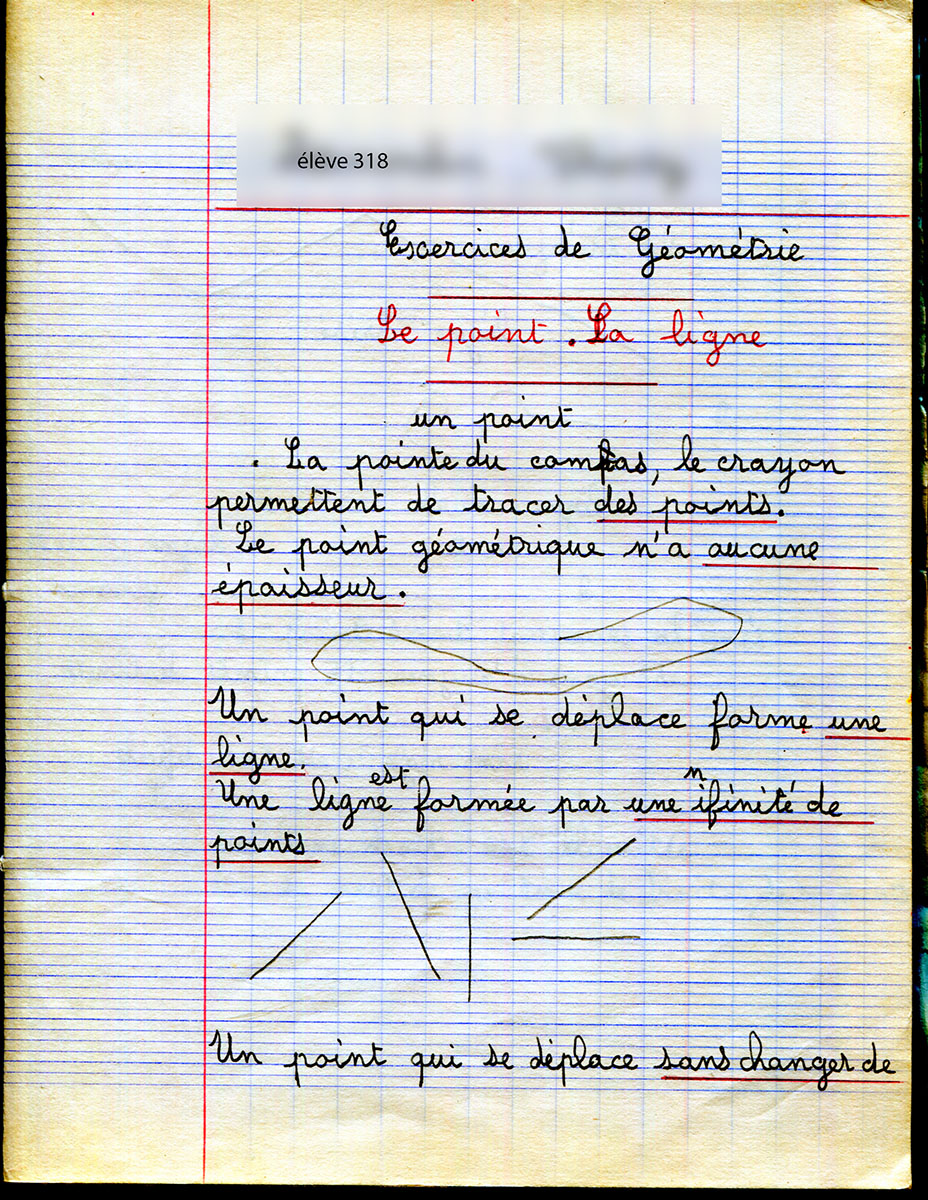 élève 318
Exercices de Géométrie
Le point. La ligne
un point
. La pointe du compas, le crayon
permettent de tracer des points.
Le point géométrique n'a aucune
épaisseur.
Un point qui se déplace forme une
ligne.
est n
Une ligne formée par une ifinité de
points
Un point qui se déplace sans changer de